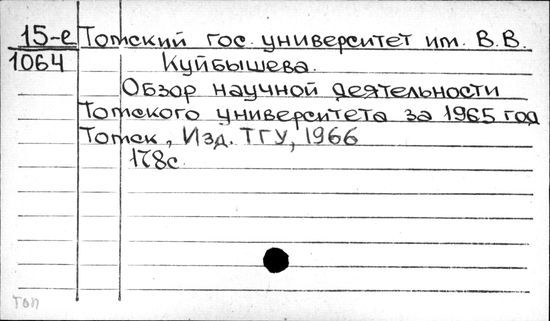 15-е Томский гос. университет им. В.В.
1064 Куйбышева.
Обзор научной деятельности
Томского университета за 1965 год
Томск, Изд. ТГУ, 1966
178с.
Топ